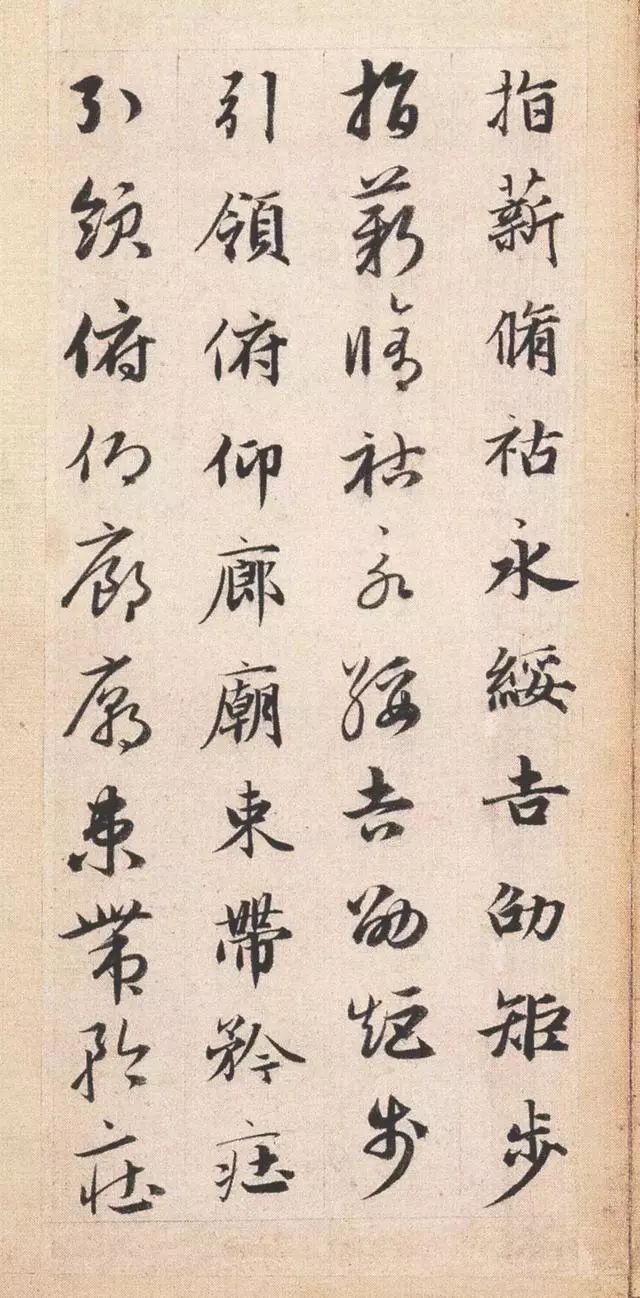 指薪脩祜永綏吉劭矩步
指薪脩祜永綏吉劭矩步
引領俯仰廊廟束帶矜莊
引領俯仰廊廟束帶矜莊